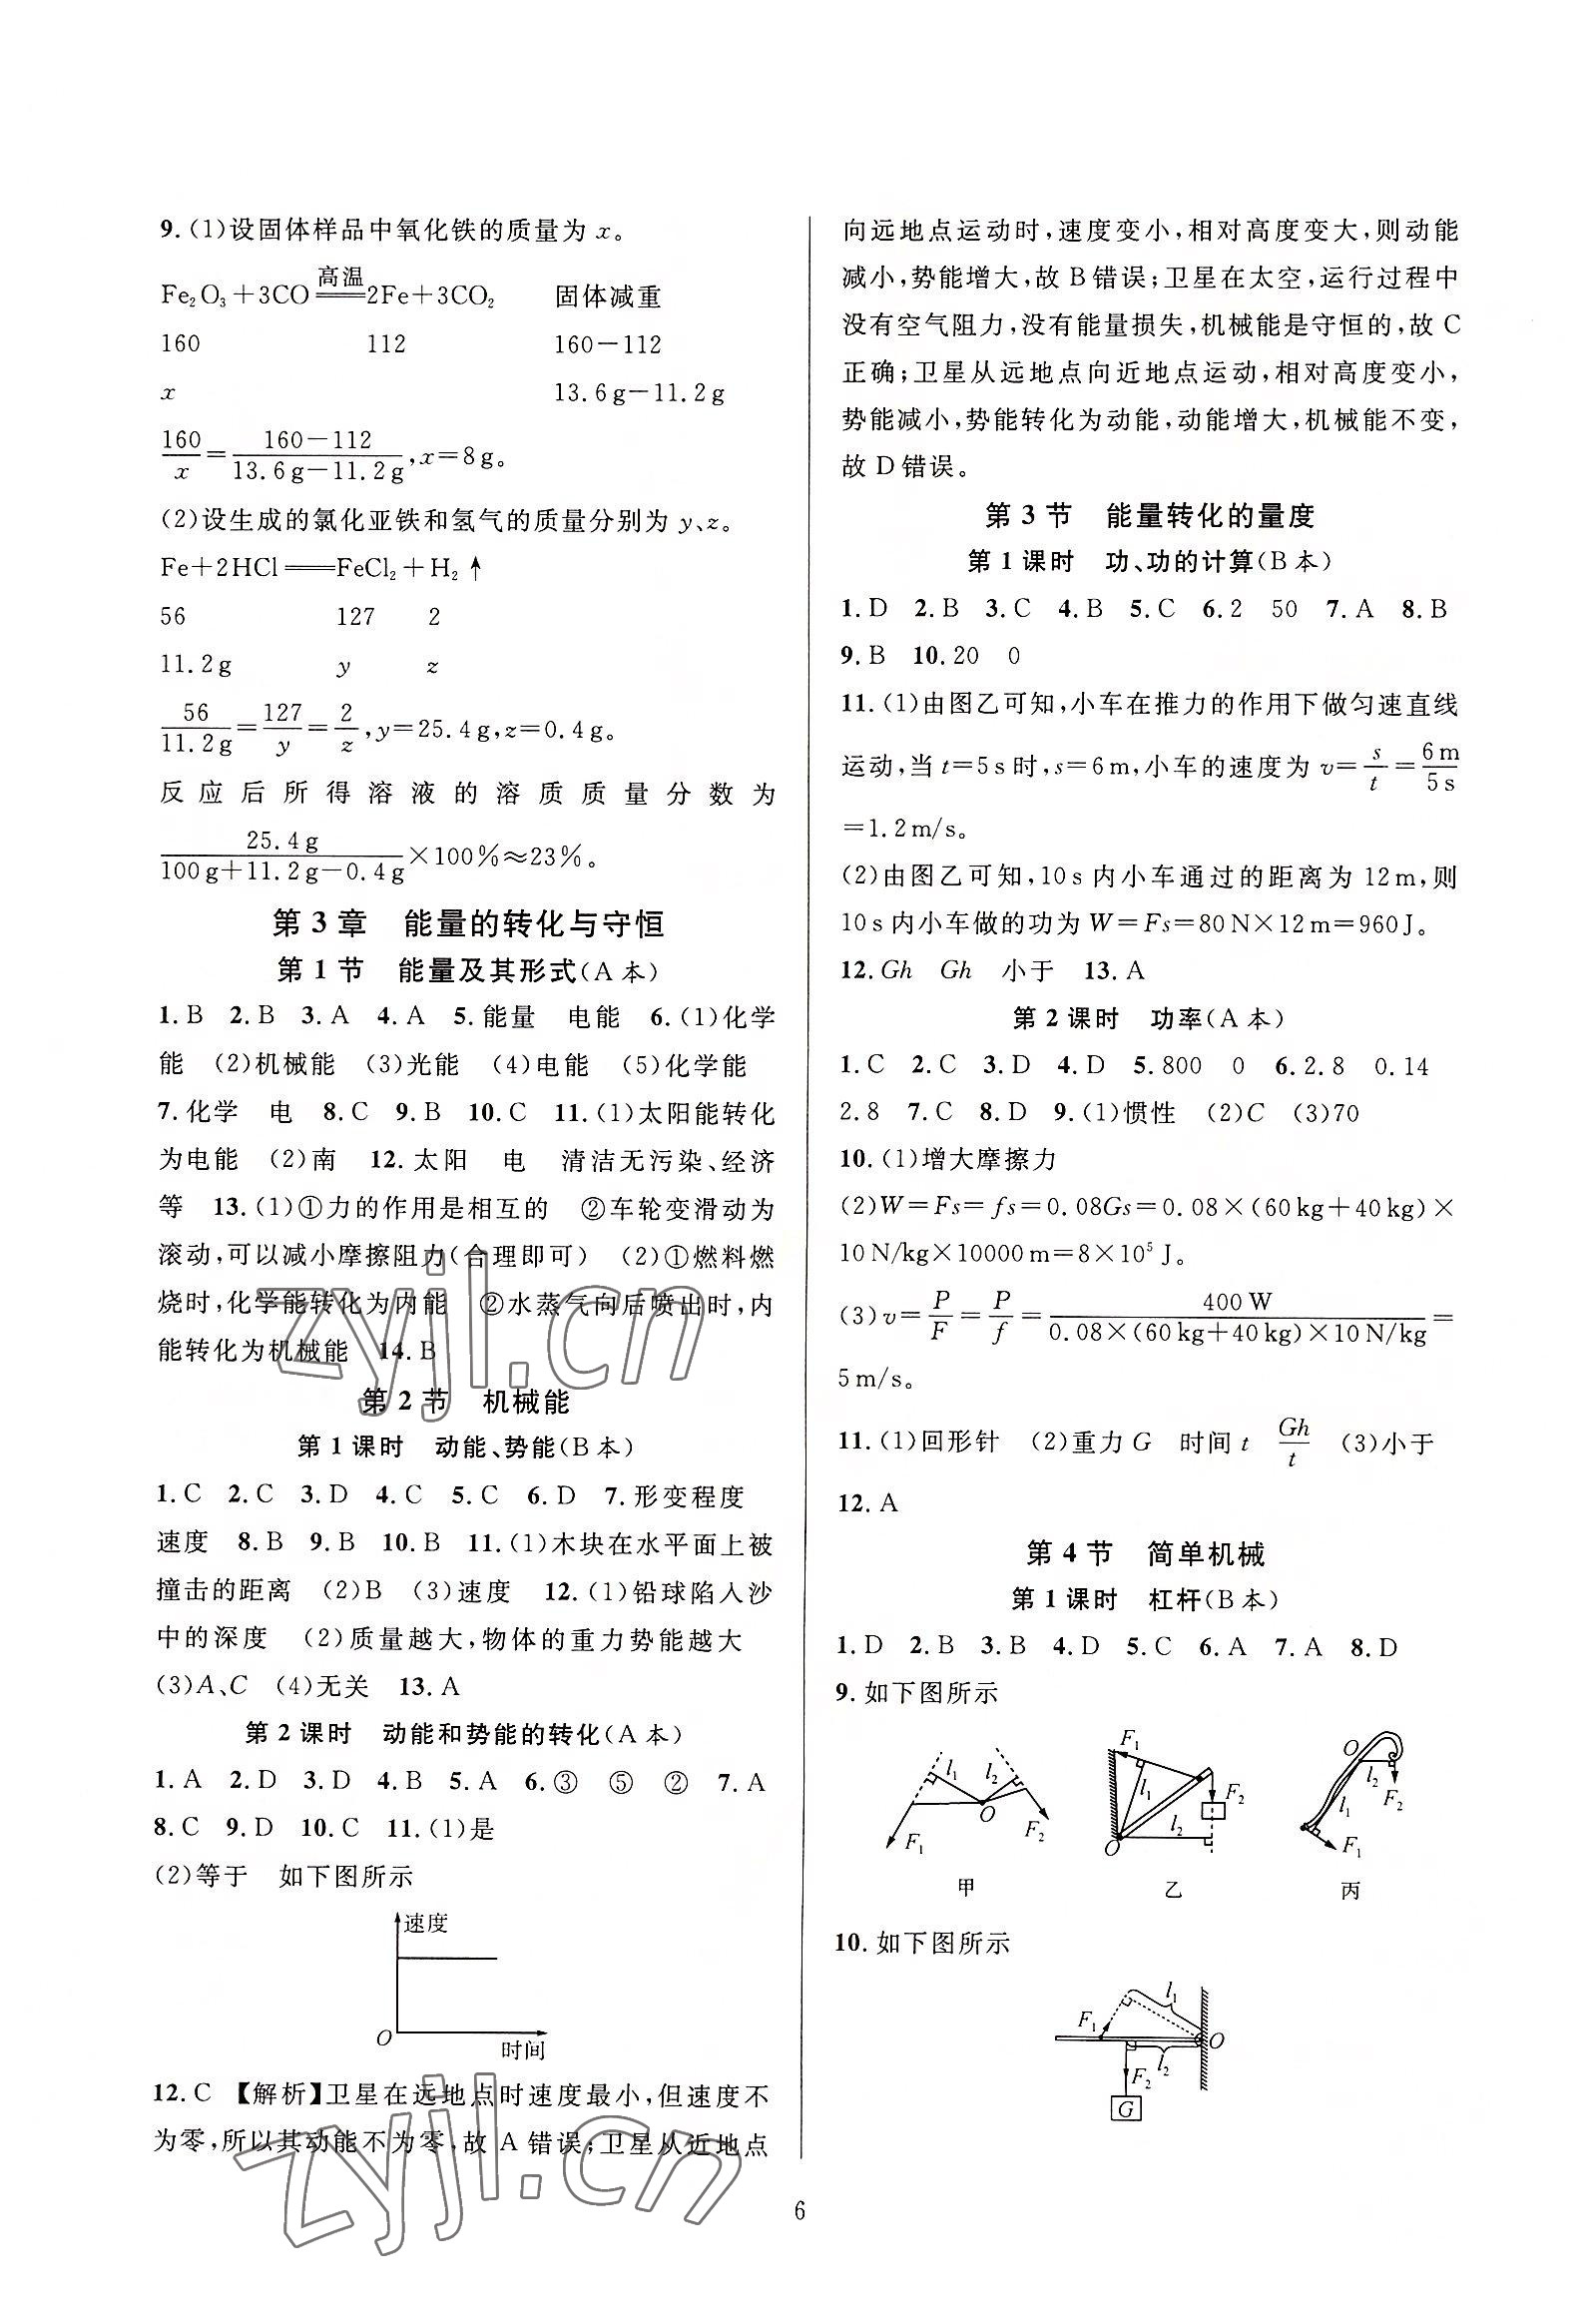 9.(1)设固体样品中氧化铁的质量为 x。
高温
Fe₂O₃+3CO══2Fe+3CO₂ 固体减重
160 112 160-112
x 13.6g-11.2g
160/x=(160-112)/(13.6g-11.2g),x=8g。
(2)设生成的氯化亚铁和氢气的质量分别为 y、z。
Fe+2HCl══FeCl₂+H₂↑
56 127 2
11.2g y z
56/11.2g=127/y=2/z,y=25.4g,z=0.4g。
反应后所得溶液的溶质质量分数为
25.4g/(100g+11.2g-0.4g)×100%≈23%。
第3章 能量的转化与守恒
第1节 能量及其形式(A本)
1.B 2.B 3.A 4.A 5.能量 电能 6.(1)化学
能 (2)机械能 (3)光能 (4)电能 (5)化学能
7.化学 电 8.C 9.B 10.C 11.(1)太阳能转化
为电能 (2)南 12.太阳 电 清洁无污染、经济
等 13.(1)①力的作用是相互的 ②车轮变滑动为
滚动,可以减小摩擦阻力(合理即可) (2)①燃料燃
烧时,化学能转化为内能 ②水蒸气向后喷出时,内
能转化为机械能 14.B
第2节 机械能
第1课时 动能、势能(B本)
1.C 2.C 3.D 4.C 5.C 6.D 7.形变程度
速度 8.B 9.B 10.B 11.(1)木块在水平面上被
撞击的距离 (2)B (3)速度 12.(1)铅球陷入沙
中的深度 (2)质量越大,物体的重力势能越大
(3)A、C (4)无关 13.A
第2课时 动能和势能的转化(A本)
1.A 2.D 3.D 4.B 5.A 6.③ ⑤ ② 7.A
8.C 9.D 10.C 11.(1)是
(2)等于 如下图所示
速度
O 时间
12.C 【解析】卫星在远地点时速度最小,但速度不
为零,所以其动能不为零,故 A 错误;卫星从近地点
向远地点运动时,速度变小,相对高度变大,则动能
减小,势能增大,故 B错误;卫星在太空,运行过程中
没有空气阻力,没有能量损失,机械能是守恒的,故 C
正确;卫星从远地点向近地点运动,相对高度变小,
势能减小,势能转化为动能,动能增大,机械能不变,
故 D 错误。
第3节 能量转化的量度
第1课时 功、功的计算(B本)
1.D 2.B 3.C 4.B 5.C 6.2 50 7.A 8.B
9.B 10.20 0
11.(1)由图乙可知,小车在推力的作用下做匀速直线
运动,当 t=5s时,s=6m,小车的速度为 v=s/t=6m/5s
=1.2m/s。
(2)由图乙可知,10s内小车通过的距离为 12m,则
10s内小车做的功为 W=Fs=80N×12m=960J。
12.Gh Gh 小于 13.A
第2课时 功率(A本)
1.C 2.C 3.D 4.D 5.800 0 6.2.8 0.14
2.8 7.C 8.D 9.(1)惯性 (2)C (3)70
10.(1)增大摩擦力
(2)W=Fs=fs=0.08Gs=0.08×(60kg+40kg)×
10N/kg×10000m=8×10⁵J。
(3)v=P/F=P/f=400W/(0.08×(60kg+40kg)×10N/kg)=
5m/s。
11.(1)回形针 (2)重力G 时间t Gh/t (3)小于
12.A
第4节 简单机械
第1课时 杠杆(B本)
1.D 2.B 3.B 4.D 5.C 6.A 7.A 8.D
9.如下图所示
l₁ l₂ O F₁ F₂
F₁ l₁ F₂ l₂ O
O l₂ F₂ l₁ F₁
甲 乙 丙
10.如下图所示
l₁
F₁ O
l₂
F₂
G
6
zyjl.cn
zyjl.cn